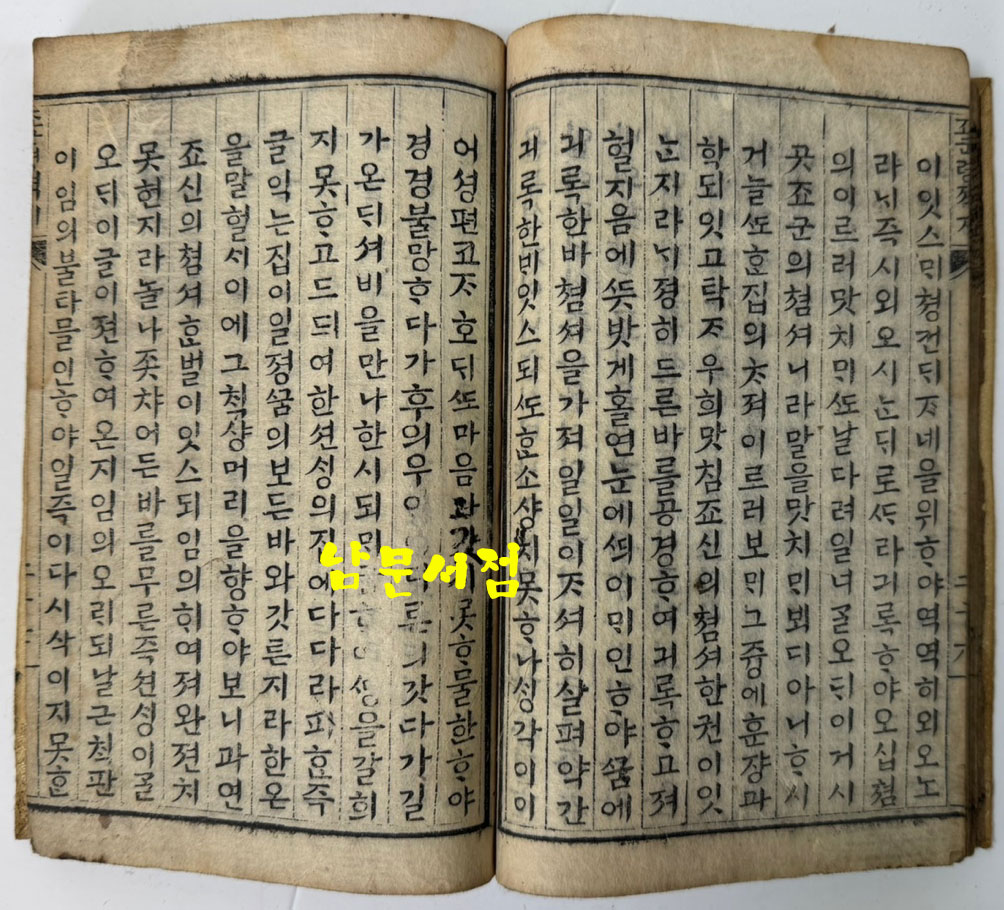 이잇스ᄆᆡ쳥컨ᄃᆡᄌᆞ네을위ᄒᆞ야역역히외오노
라ᄂᆡ즉시외오시ᄂᆞᆫᄃᆡ로ᄯᆞ라긔록ᄒᆞ야오십쳠
의이르러맛치ᄆᆡᄯᅩ날다려일너ᄀᆞᆯ오ᄃᆡ이거시
곳죠군의쳠셔니라말을맛치ᄆᆡ뵈디아니ᄒᆞ시
거늘ᄯᅩᄒᆞᆫ집의ᄎᆞ져이르러보ᄆᆡ그즁에훈쟝과
학되잇고탁ᄌᆞ우희맛침죠신의쳠셔한권이잇
ᄂᆞᆫ지라ᄂᆡ졍히드른바를공경ᄒᆞ여긔록ᄒᆞ고져
헐지음에ᄯᅳᆺ밧게홀연눈에ᄯᅴ이ᄆᆡ인ᄒᆞ야ᄭᅮᆷ에
긔록한바쳠셔을가져일일이ᄌᆞ셔히살펴약간
긔록한ᄇᆡ잇스되ᄯᅩᄒᆞᆫ소샹치못ᄒᆞ나ᄉᆡᆼ각이이
어셩편코ᄌᆞ호ᄃᆡᄯᅩ마음과갓 못ᄒᆞ물한ᄒᆞ야
경경불망ᄒᆞ다가후의우 갓다가길
가온ᄃᆡ셔비을만나한시되ᄆᆡ ᄉᆡᆼ을갈희
지못ᄒᆞ고드듸여한션ᄉᆡᆼ의집에다다라피ᄒᆞᆫ즉
글익는집이일졍ᄭᅮᆷ의보든바와갓튼지라한온
을말헐ᄉᆡ이에그ᄎᆡᆨ샹머리을향ᄒᆞ야보니과연
죠신의쳠셔ᄒᆞᆫ벌이잇스되임의ᄒᆡ여져완젼치
못헌지라놀나좃챠어든바를무른즉션ᄉᆡᆼ이ᄀᆞᆯ
오ᄃᆡ이글이젼ᄒᆞ여온지임의오ᄅᆡ되날근ᄎᆡᆨ판
이임의불타믈인ᄒᆞ야일즉이다시삭이지못ᄒᆞᆫ
남문서점